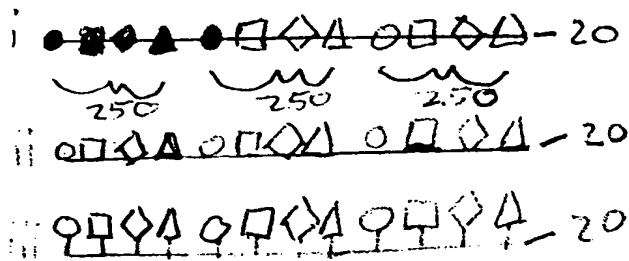 i – 20
250 250 250
ii – 20
iii – 20